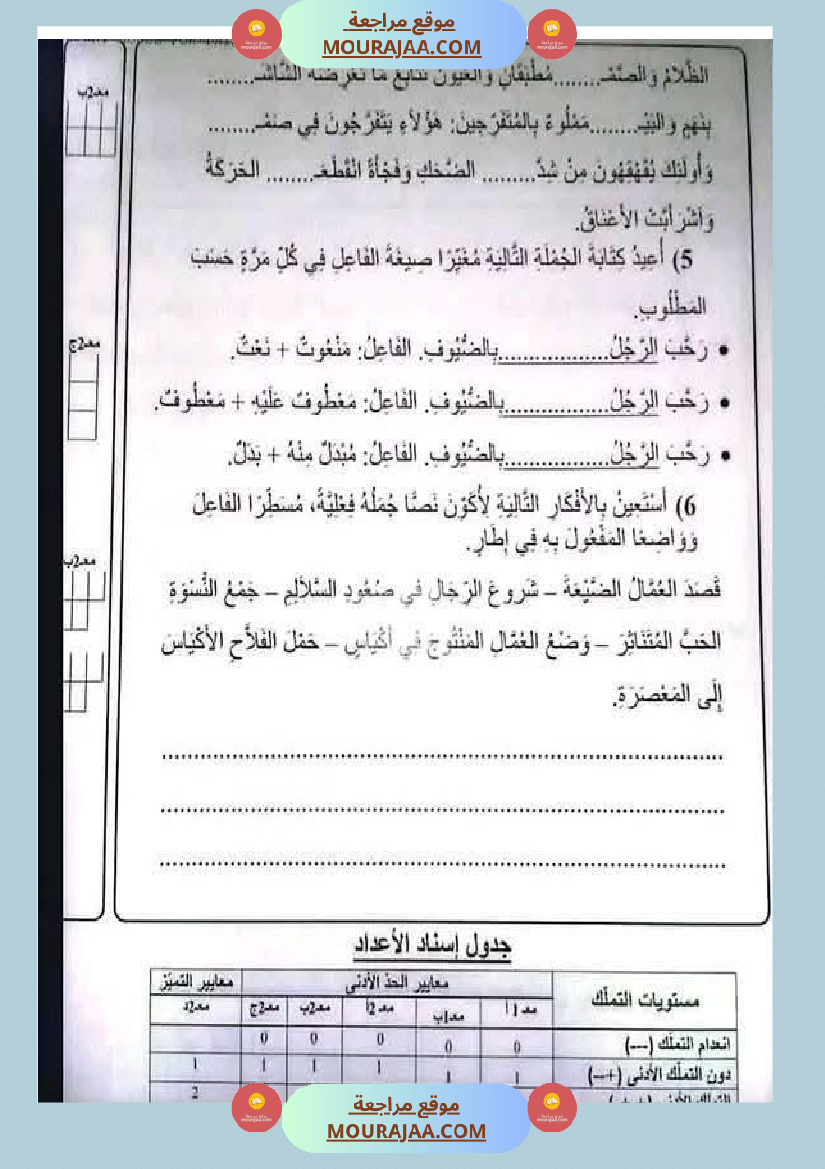 موقع مراجعة
MOURAJAA.COM
معـ2ب
الظَّلَامُ وَالصَّمْـ........مُطْبَقَانِ وَالعُيُونُ تُتَابِعُ مَا تَعْرِضُهُ الشَّاشَـ........
بِنَهَمٍ وَالبَيْـ........مَمْلُوءٌ بِالمُتَفَرِّجِينَ: هَؤُلَاءِ يَتَفَرَّجُونَ فِي صَمْـ........
وَأُولَئِكَ يُقَهْقِهُونَ مِنْ شِدَّ......... الضَّحَكِ وَفَجْأَةً انْقَطَعَـ........ الحَرَكَةُ
وَاشْرَأَبَّتْ الأَعْنَاقُ.
5) أُعِيدُ كِتَابَةَ الجُمْلَةِ التَّالِيَةِ مُغَيِّرًا صِيغَةَ الفَاعِلِ فِي كُلِّ مَرَّةٍ حَسَبَ
المَطْلُوبِ.
معـ2ج
• رَحَّبَ الرَّجُلُ..................بِالضُّيُوفِ. الفَاعِلُ: مَنْعُوتٌ + نَعْتٌ.
• رَحَّبَ الرَّجُلُ..................بِالضُّيُوفِ. الفَاعِلُ: مَعْطُوفٌ عَلَيْهِ + مَعْطُوفٌ.
• رَحَّبَ الرَّجُلُ..................بِالضُّيُوفِ. الفَاعِلُ: مُبْدَلٌ مِنْهُ + بَدَلٌ.
6) أَسْتَعِينُ بِالأَفْكَارِ التَّالِيَةِ لِأُكَوِّنَ نَصًّا جُمَلُهُ فِعْلِيَّةٌ، مُسَطِّرًا الفَاعِلَ
وَوَاضِعًا المَفْعُولَ بِهِ فِي إِطَارٍ.
معـ2ب
قَصَدَ العُمَّالُ الضَّيْعَةَ – شُرُوعُ الرِّجَالِ فِي صُعُودِ السَّلَالِمِ – جَمْعُ النِّسْوَةِ
الحَبَّ المُتَنَاثِرَ – وَضْعُ العُمَّالِ المَنْتُوجَ فِي أَكْيَاسٍ – حَمْلَ الفَلَّاحِ الأَكْيَاسَ
إِلَى المَعْصَرَةِ.
................................................................
................................................................
................................................................
جدول إسناد الأعداد
مستويات التملّك معايير الحدّ الأدنى معايير التميّز
معـ1أ معـ1ب معـ2أ معـ2ب معـ2ج معـ2د
انعدام التملّك (---) 0 0 0 0 0
دون التملّك الأدنى (+--) 1 1 1 1 1 1
2
موقع مراجعة
MOURAJAA.COM